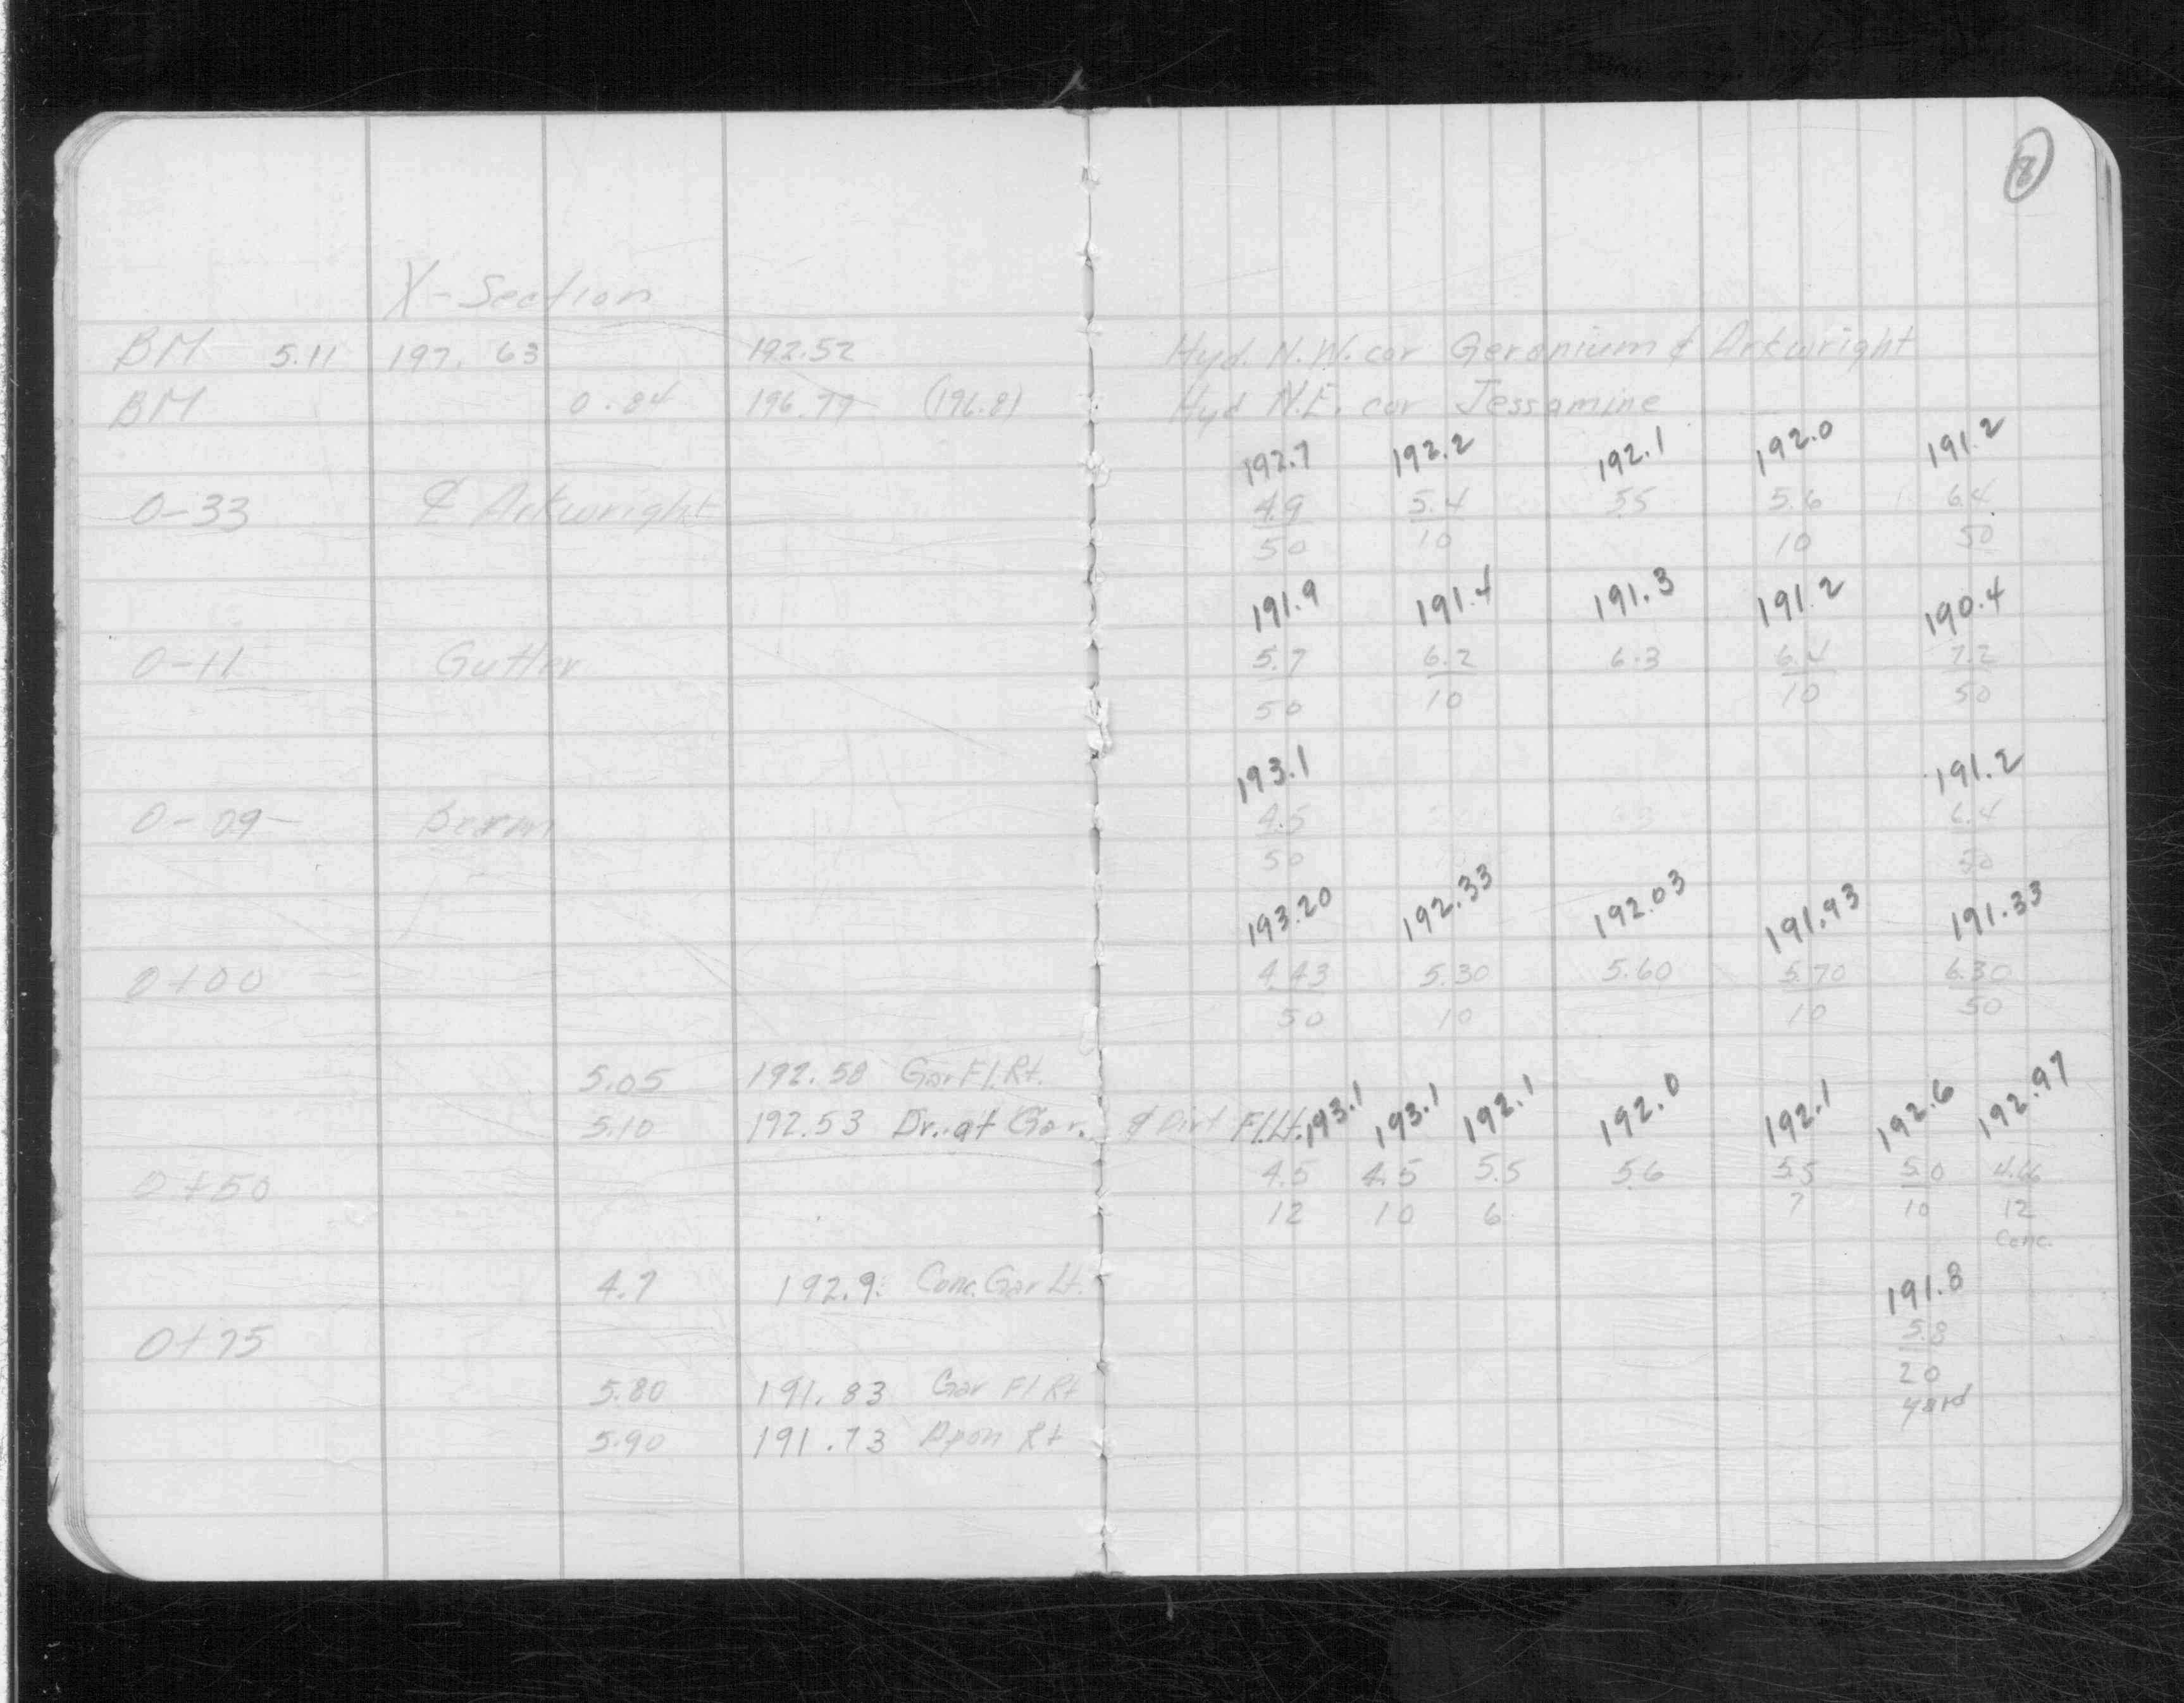 X-Section
BM 5.11 197.63 192.52
BM 0.84 196.79 (196.81)
0-33 ₵ Arkwright
0-11 Gutter
0-09 Berm
0+00
5.05 192.58 Gar Fl. Rt.
5.10 192.53 Dr. at Gar. & Dirt Fl. Lt.
0+50
4.7 192.9 Conc. Gar Lt.
0+75
5.80 191.83 Gar Fl Rt
5.90 191.73 Apon Rt
Hyd. N.W. cor Geranium & Arkwright
Hyd N.E. cor Jessamine
192.7 192.2 192.1 192.0 191.2
4.9 5.4 5.5 5.6 6.4
50 10 10 50
191.9 191.4 191.3 191.2 190.4
5.7 6.2 6.3 6.4 7.2
50 10 10 50
193.1 191.2
4.5 6.4
50 50
193.20 192.33 192.03 191.93 191.33
4.43 5.30 5.60 5.70 6.30
50 10 10 50
193.1 193.1 192.1 192.0 192.1 192.6 192.97
4.5 4.5 5.5 5.6 5.5 5.0 4.66
12 10 6 7 10 12
Conc.
191.8
5.8
20
yard